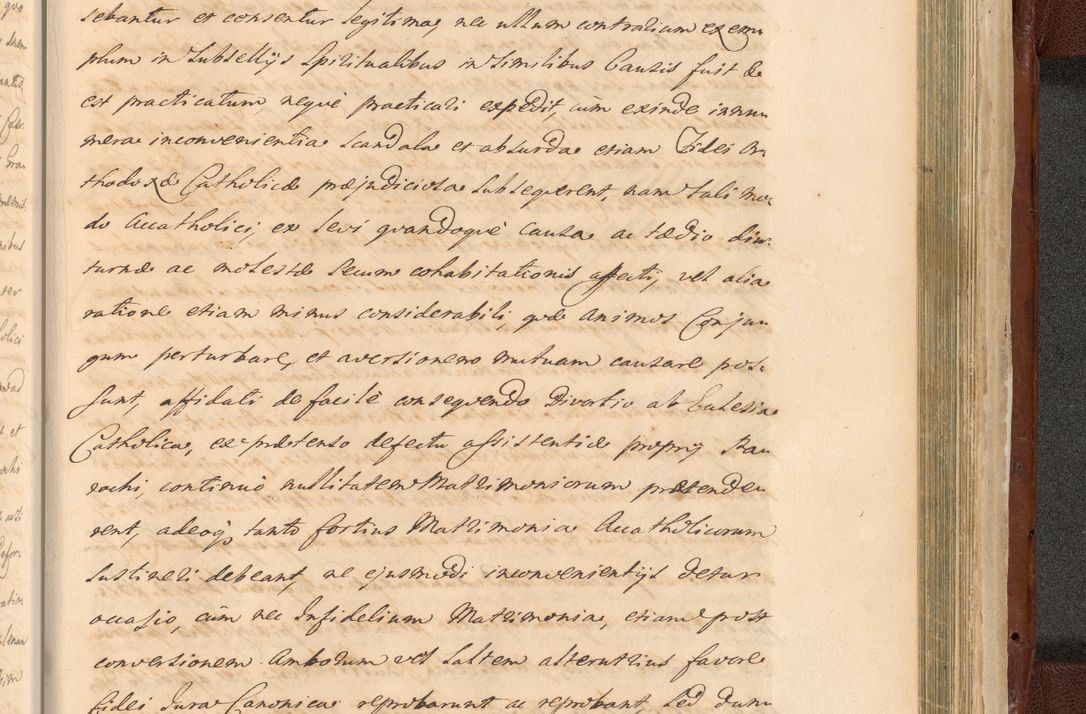 sebantur et censentur legitima, nec ullum contrarium exem
plum in Subsellijs Spiritualibus in similibus Causis fuit &
est practicatum neque practicari expedit, cum exinde innu
mera inconvenientia scandala et absurda etiam Fidei Or
thodoxæ Catholicæ præjudiciosa subsequerent, nam tali mo
do Accatholici, ex levi quandoque causa ac tædio diu
turnæ ac molestæ secum cohabitationis affecti, vel alia
ratione etiam minus considerabili, quæ animos Conju
gum perturbare, et aversionem mutuam causare pos
sunt, affidati de facile consequendo Divortio ab Ecclesia
Catholica, ex prætenso defectu assistentiæ proprij Pa
rochi, continuo nullitatem Matrimoniorum prætende
rent, adeoq tanto fortius Matrimonia Accatholicorum
sustineri debeant, ne ejusmodi inconvenientijs detur
occasio, cum nec Infidelium Matrimonia, etiam post
conversionem Amborum vel saltem alterutrius favore
fidei Jura Canonica reprobarunt ac reprobant, sed dum